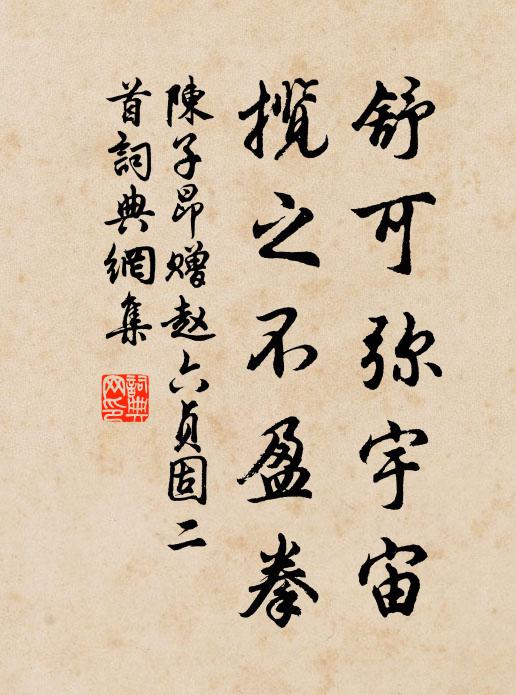 舒可弥宇宙
揽之不盈拳
陳子昂赠赵六贞固二
首詞典網集
詞典
网印